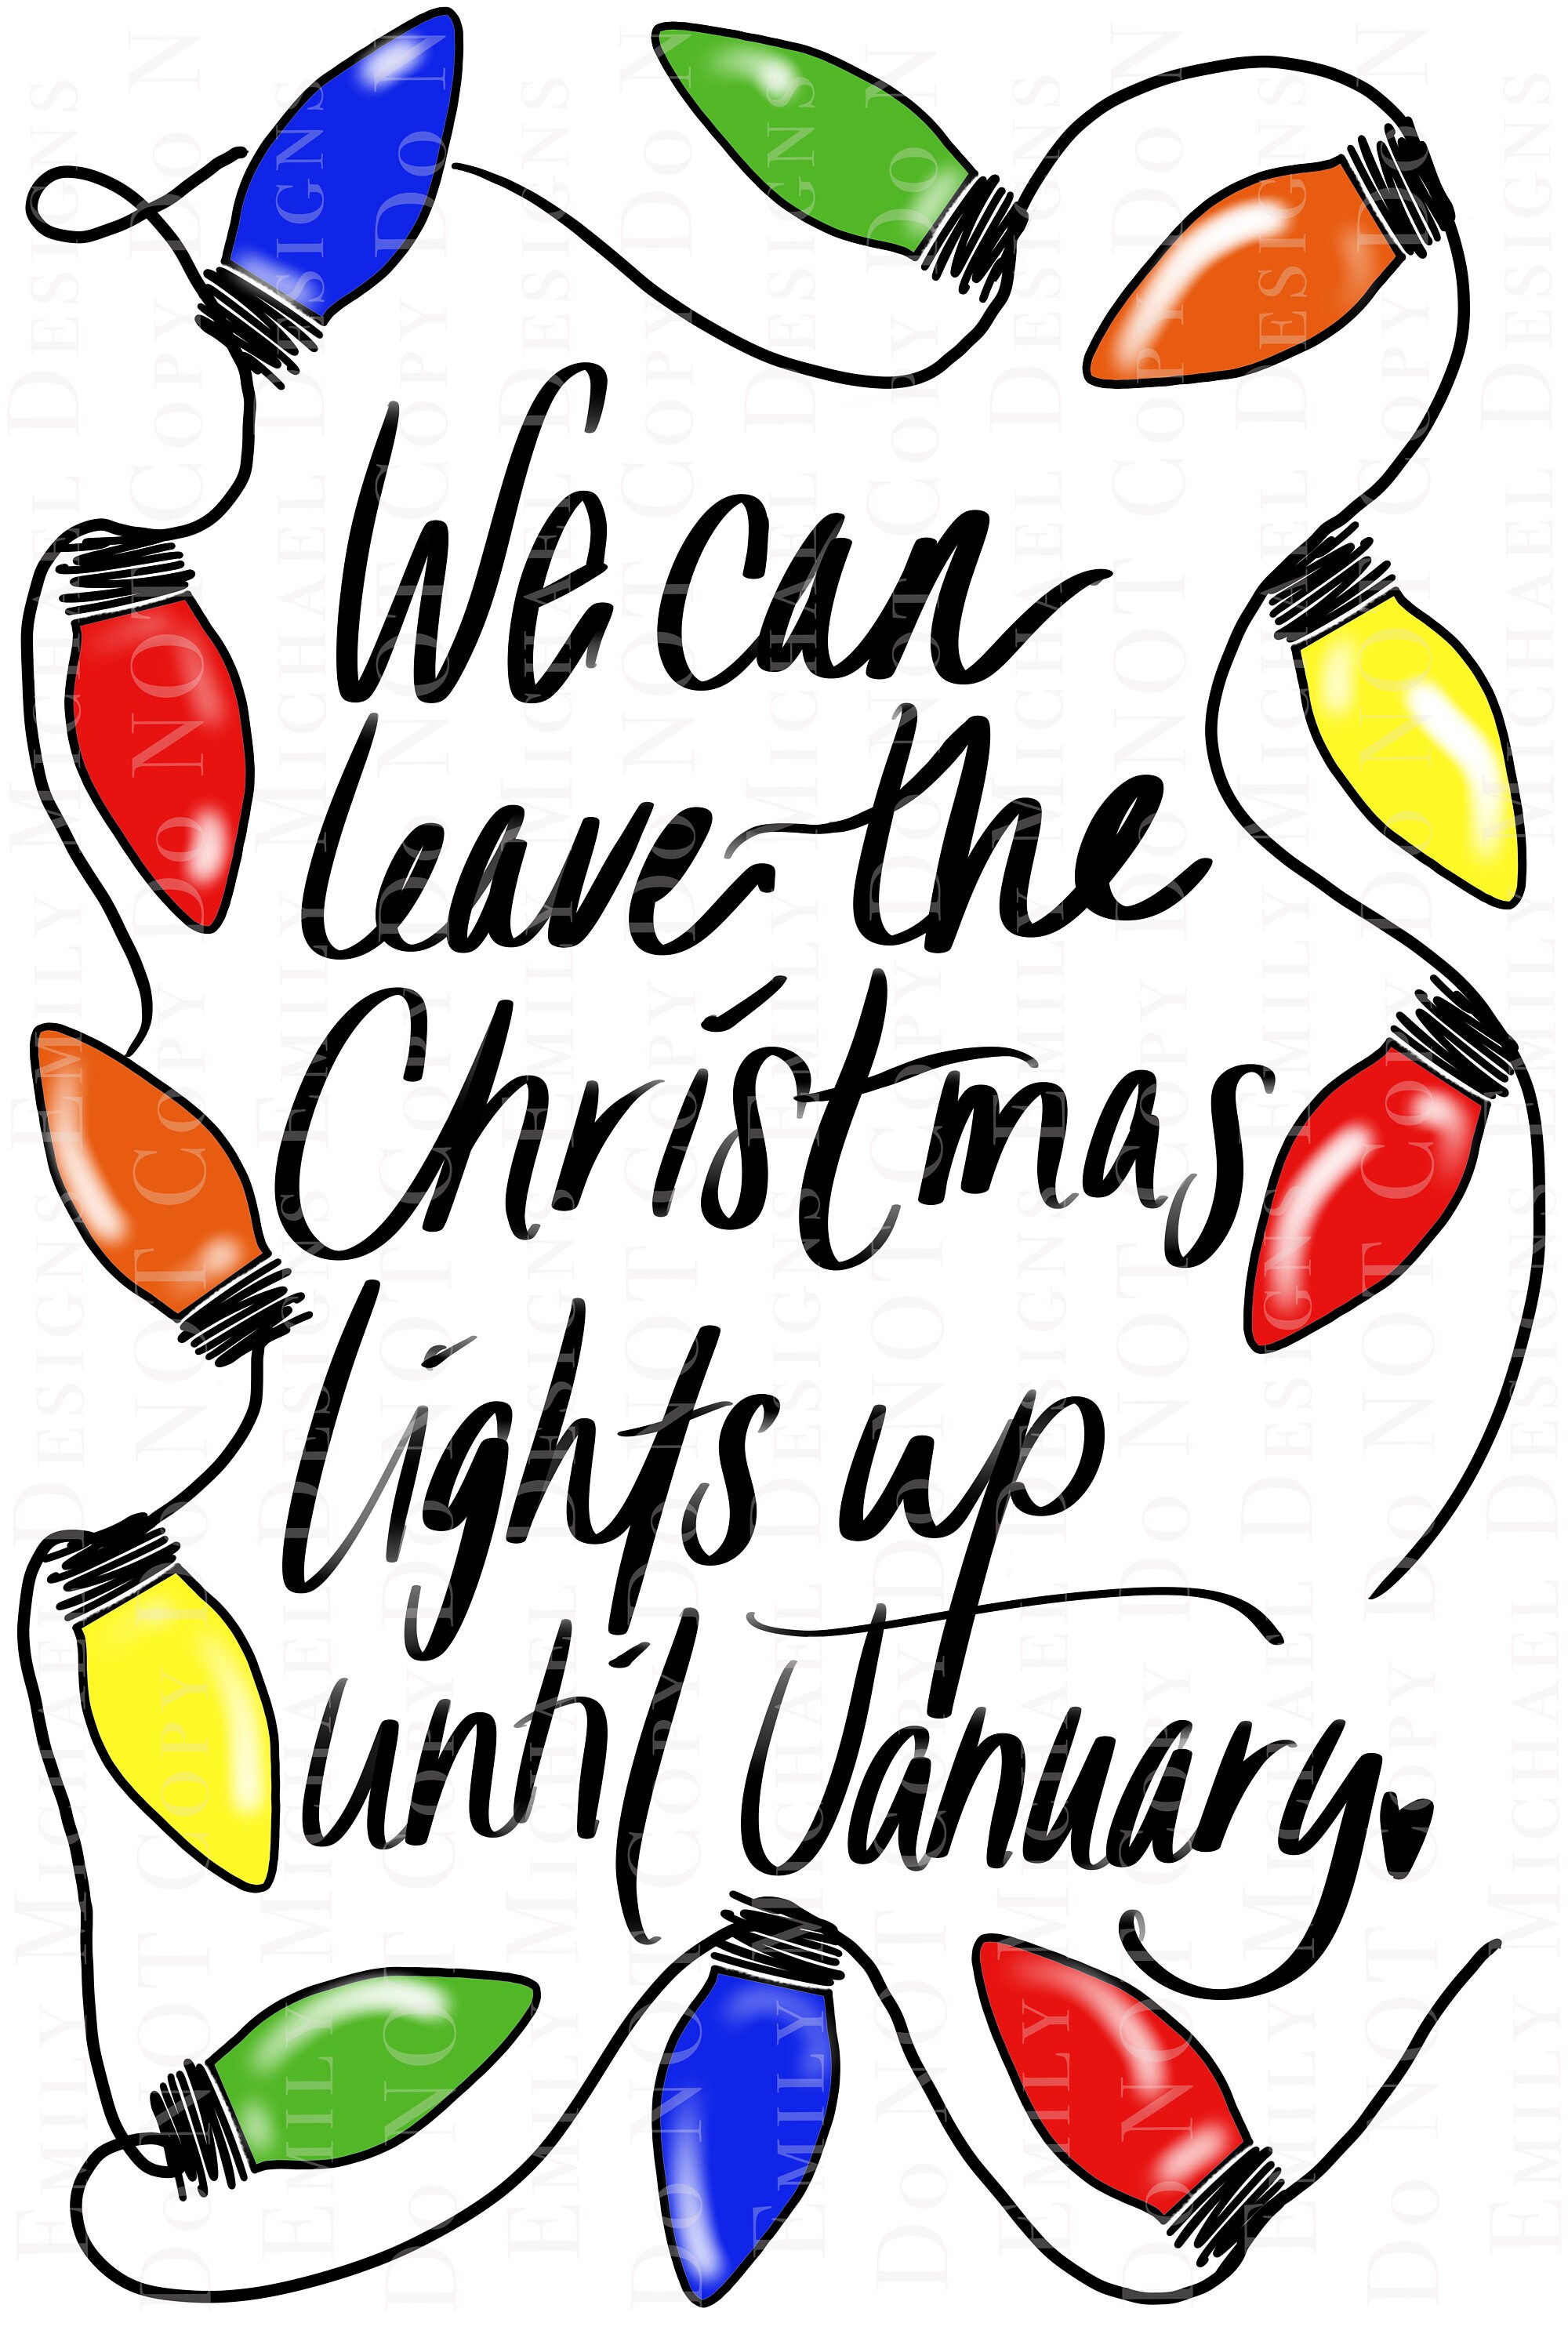 We can
leave the
Christmas
lights up
until January.
EMILY MICHAEL DESIGNS
DO NOT COPY